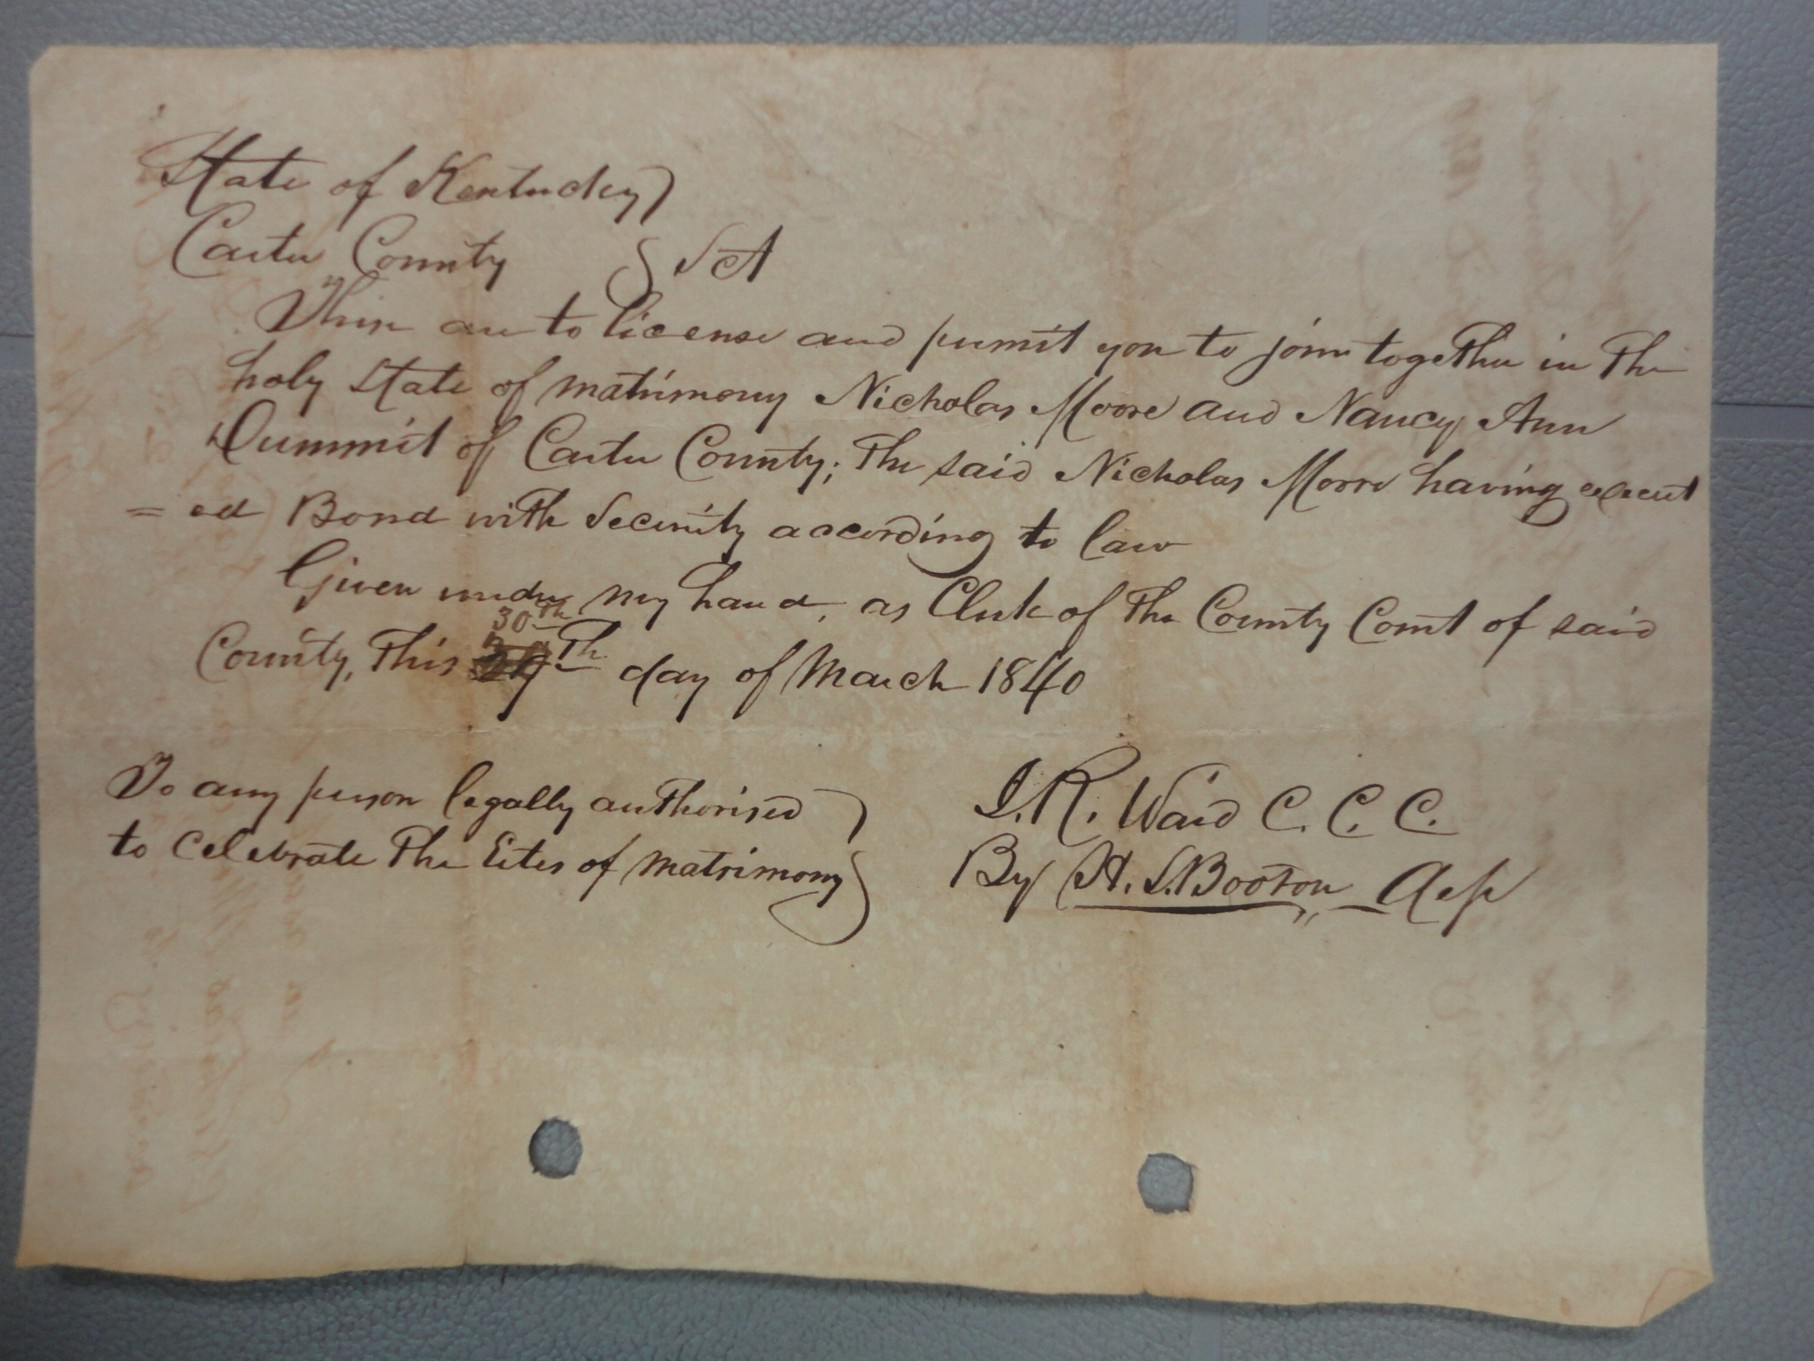 State of Kentucky)
Carter County } Sct
These are to license and permit you to join together in the
holy state of matrimony Nicholas Moore and Nancy Ann
Dummit of Carter County; the said Nicholas Moore having execut
= ed Bond with Security according to law
Given under my hand, as Clerk of the County Court of said
30th
County, this th day of March 1840
To any person legally authorised )
to celebrate the Rites of matrimony }
J. R. Ward C. C. C.
By H. S. Booton Dep